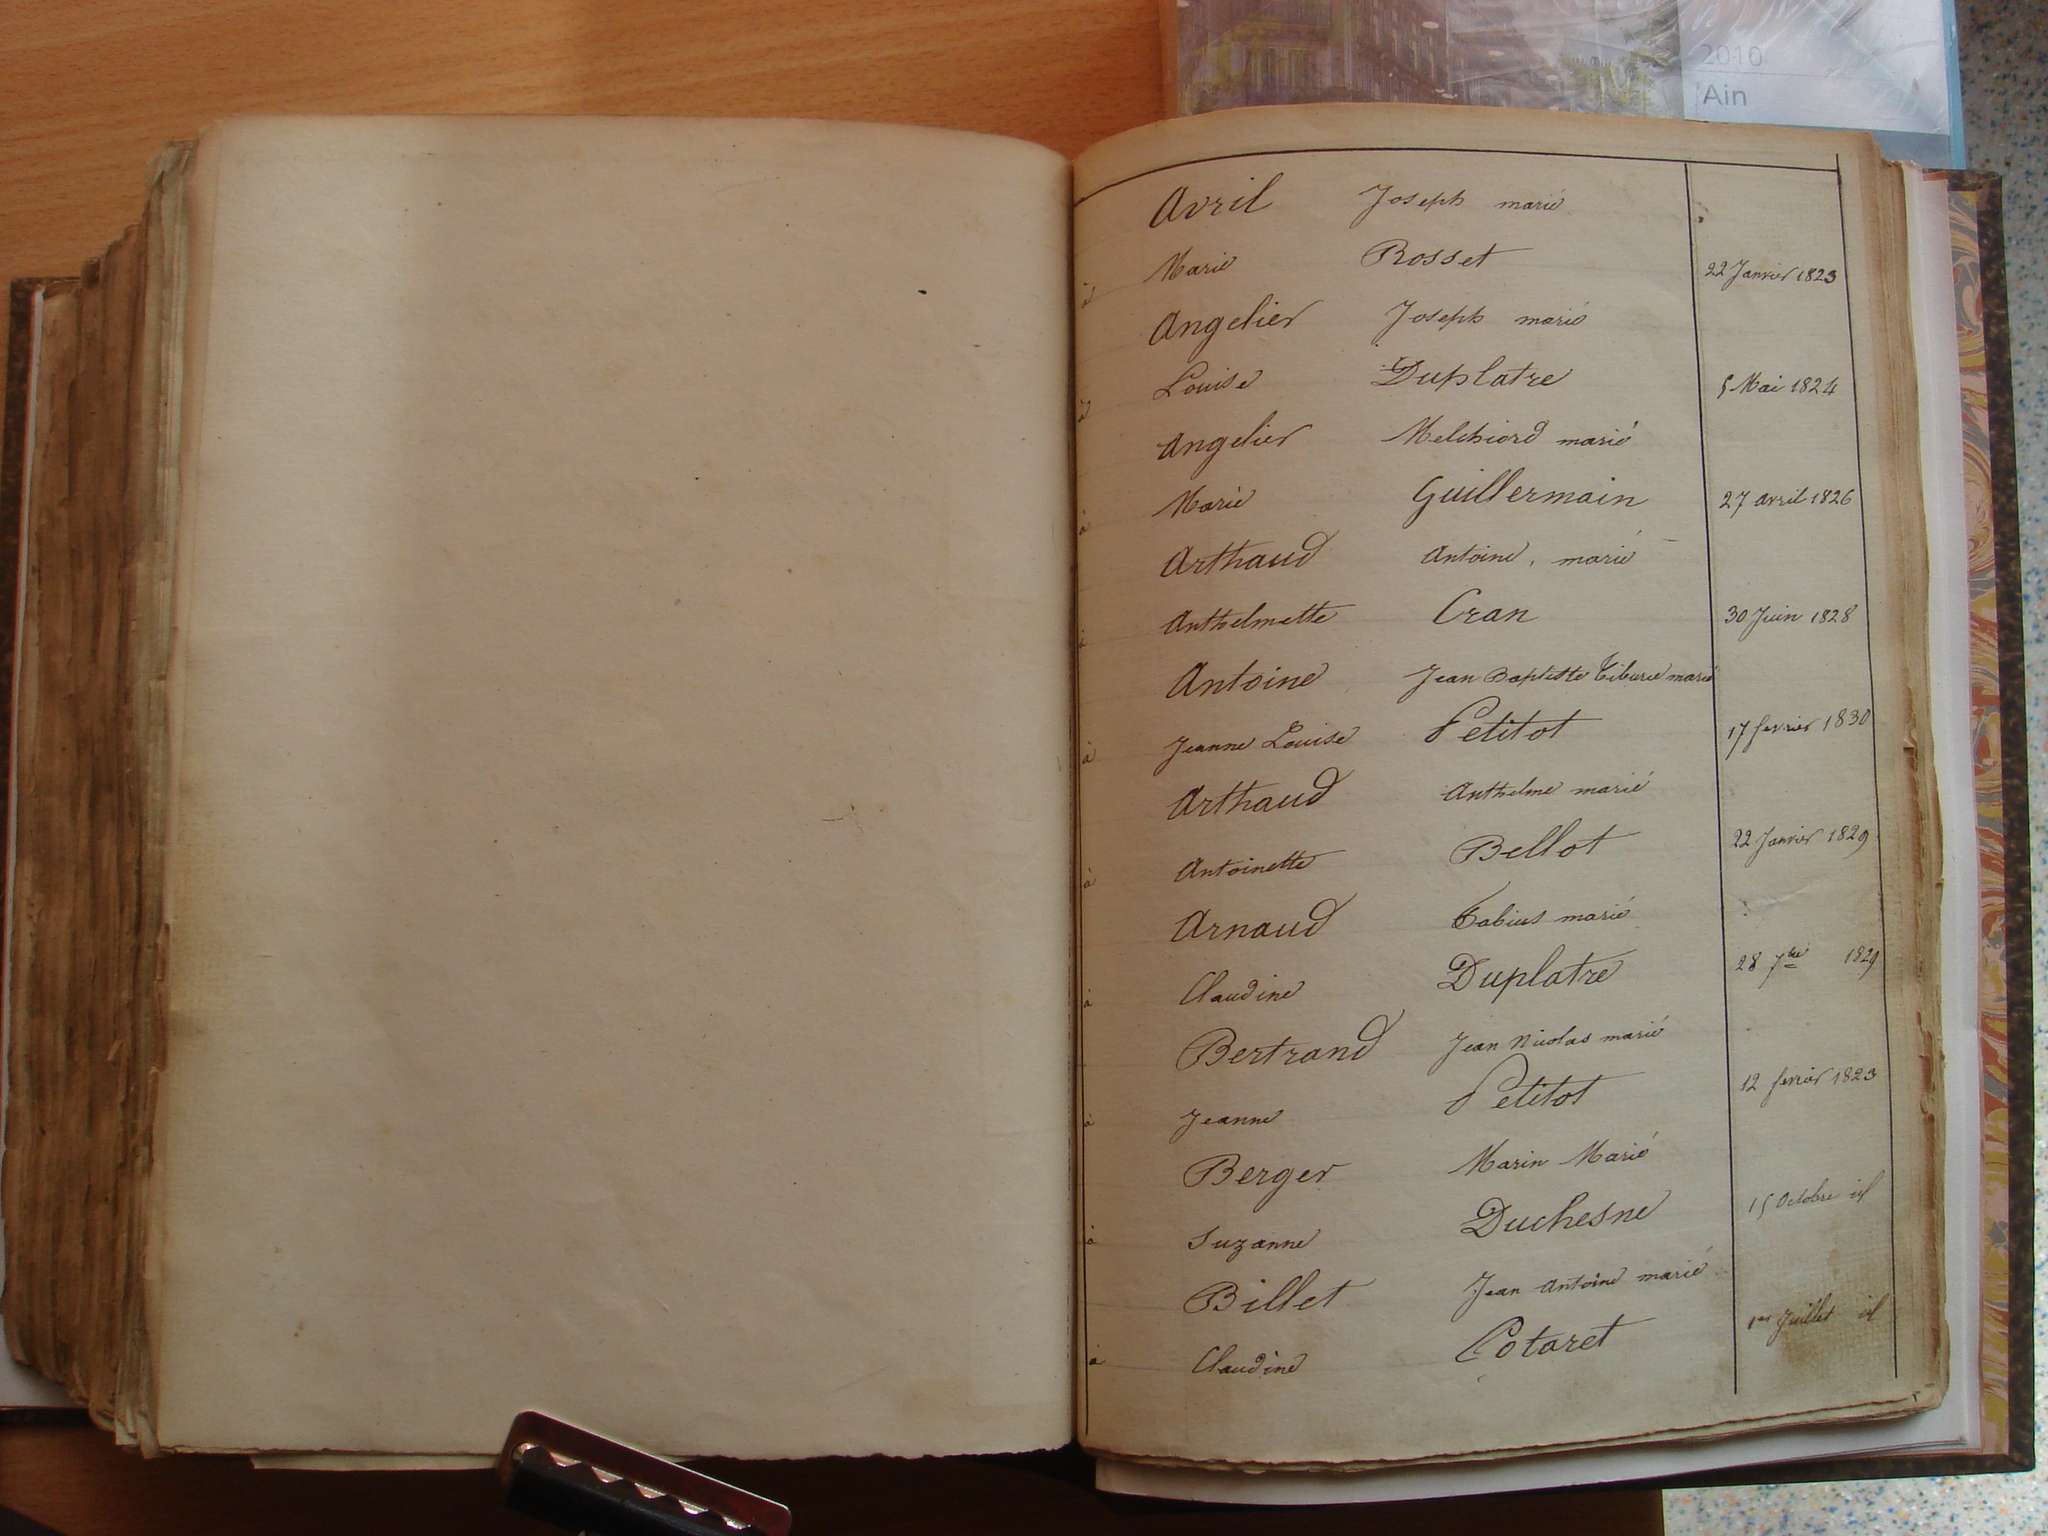 2010
Ain
Avril Joseph marié
à Marie Rosset 22 Janvier 1823
Angelier Joseph marié
à Louise Duplatre 5 Mai 1824
Angelier Melchiord marié
à Marie Guillermain 27 avril 1826
Arthaud Antoine, marié
à Anthelmette Cran 30 Juin 1828
Antoine Jean Baptiste Tiburce marié
à Jeanne Louise Petitot 17 fevrier 1830
Arthaud Anthelme marié
à Antoinette Bellot 22 Janvier 1829
Arnaud marié
à Claudine Duplatre 28 7bre 1829
Bertrand Jean Nicolas marié
à Jeanne Petitot 12 fevrier 1823
Berger Marin Marié
à Suzanne Duchesne 15 Octobre id
Billet Jean Antoine marié
à Claudine Cotaret 1er Juillet id